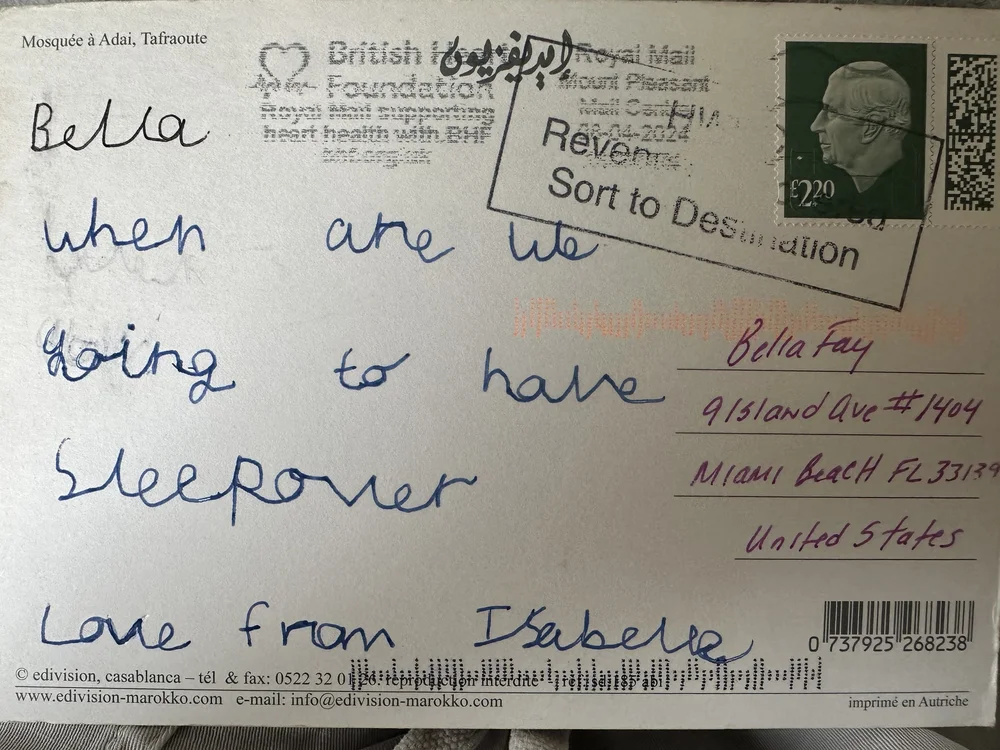 Mosquée à Adai, Tafraoute
British Heart
Foundation
Royal Mail supporting
heart health with BHF
bhf.org.uk
إيديفزيون
Royal Mail
Mount Pleasant
Mail Centre
18-04-2024
Sort to Destination
£2.20
Bella
when are we
going to have
Sleepover
Love from Isabella
Bella Fay
9 Island Ave #1404
Miami Beach FL 33139
United States
0 737925 268238
© edivision, casablanca – tél & fax: 0522 32 01 26. reproduction interdite
www.edivision-marokko.com e-mail: info@edivision-marokko.com
imprimé en Autriche